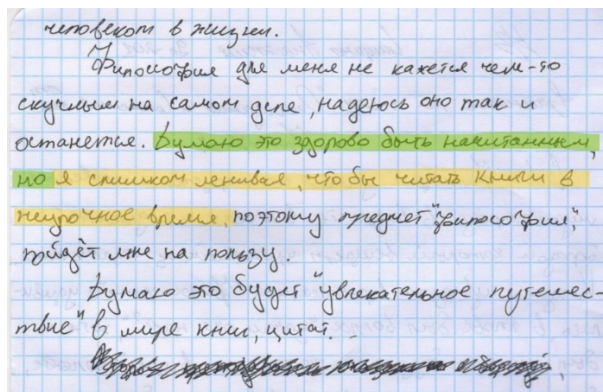 человеком в жизни.
Философия для меня не кажется чем-то
скучным на самом деле, надеюсь оно так и
останется. Думаю это здорово быть начитанным,
но я слишком ленивая, что бы читать книги в
неурочное время, поэтому предмет "философия",
пойдёт мне на пользу.
Думаю это будет "увлекательное путешес-
твие" в мире книг, цитат.